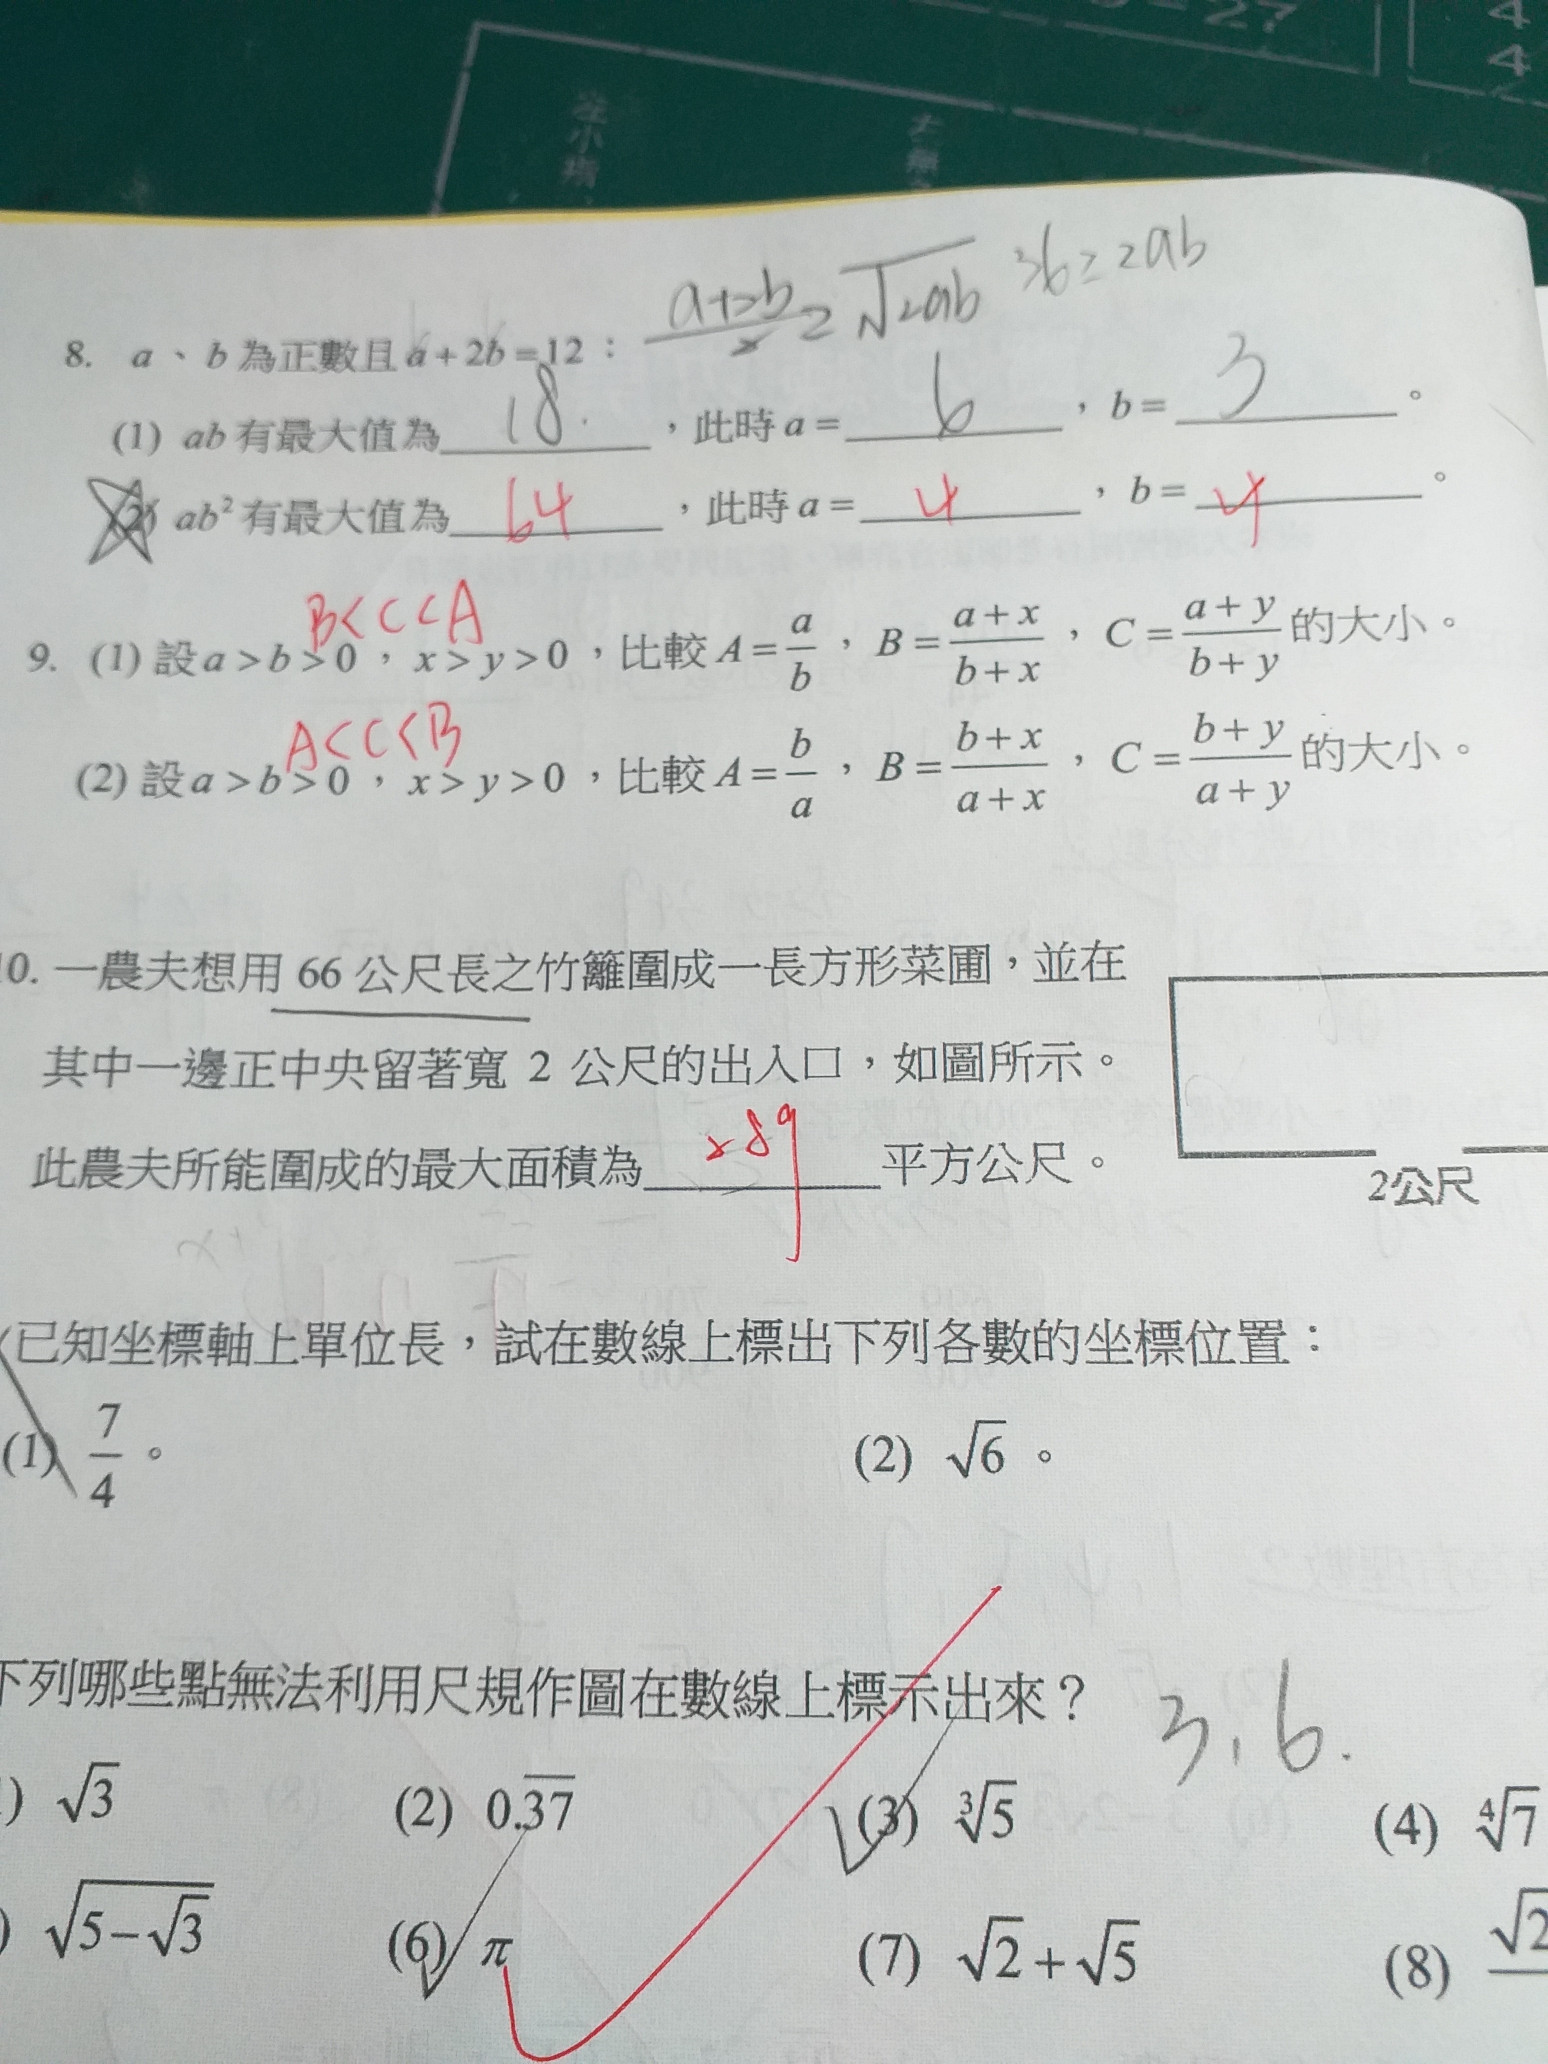 27
4
4
a+2b/2 ≥ √2ab 36≥2ab
8. a、b 為正數且 a+2b=12：
(1) ab 有最大值為 18 ，此時 a= 6 ，b= 3 。
(2) ab² 有最大值為 64 ，此時 a= 4 ，b= 4 。
B<C<A
9. (1) 設 a>b>0，x>y>0，比較 A=a/b，B=(a+x)/(b+x)，C=(a+y)/(b+y) 的大小。
A<C<B
(2) 設 a>b>0，x>y>0，比較 A=b/a，B=(b+x)/(a+x)，C=(b+y)/(a+y) 的大小。
0. 一農夫想用 66 公尺長之竹籬圍成一長方形菜圃，並在
其中一邊正中央留著寬 2 公尺的出入口，如圖所示。
此農夫所能圍成的最大面積為 289 平方公尺。
2公尺
已知坐標軸上單位長，試在數線上標出下列各數的坐標位置：
(1) 7/4。 (2) √6。
下列哪些點無法利用尺規作圖在數線上標示出來？ 3,6.
) √3 (2) 0.3̅7̅ (3) ∛5 (4) ∜7
) √(5−√3) (6) π (7) √2+√5 (8) √2